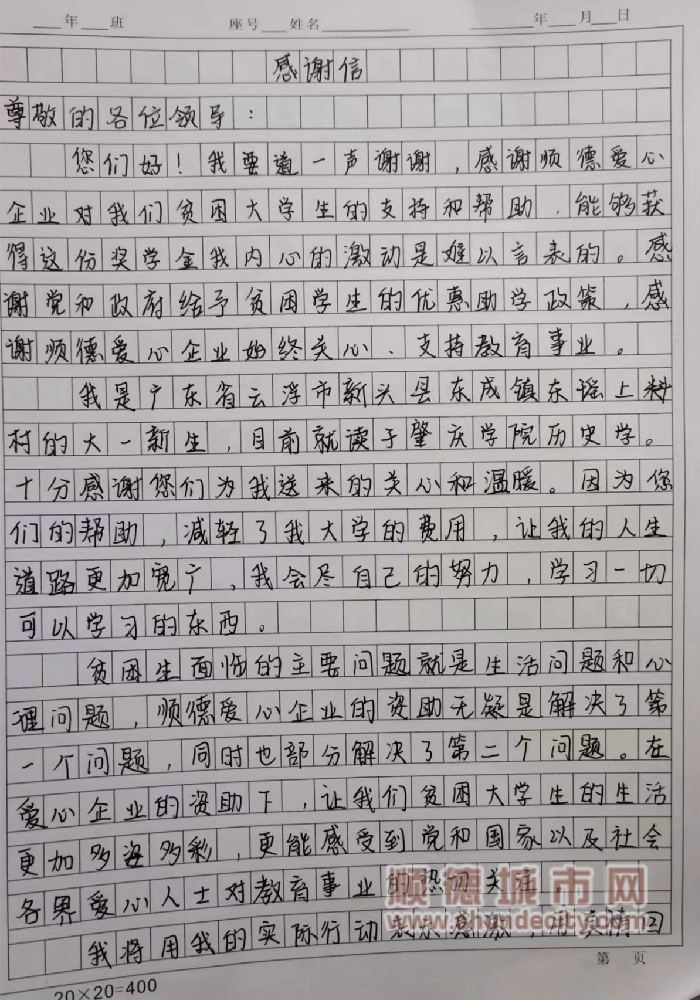 年 班 座号 姓名 年 月 日
感谢信
尊敬的各位领导:
您们好!我要道一声谢谢,感谢顺德爱心
企业对我们贫困大学生的支持和帮助,能够获
得这份奖学金我内心的激动是难以言表的。感
谢党和政府给予贫困学生的优惠助学政策,感
谢顺德爱心企业始终关心、支持教育事业。
我是广东省云浮市新头县东成镇东瑶上料
村的大一新生,目前就读于肇庆学院历史学。
十分感谢您们为我送来的关心和温暖。因为您
们的帮助,减轻了我大学的费用,让我的人生
道路更加宽广,我会尽自己的努力,学习一切
可以学习的东西。
贫困生面临的主要问题就是生活问题和心
理问题,顺德爱心企业的资助无疑是解决了第
一个问题,同时也部分解决了第二个问题。在
爱心企业的资助下,让我们贫困大学生的生活
更加多姿多彩,更能感受到党和国家以及社会
各界爱心人士对教育事业的热切关注。
我将用我的实际行动表示感激,用真情回
顺德城市网
www.shundecity.com
第 页
20×20=400